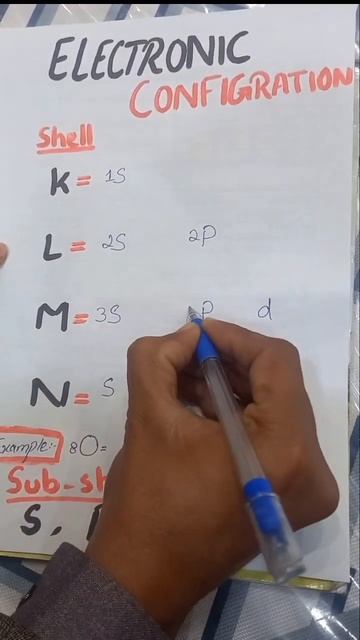 ELECTRONIC
CONFIGRATION
Shell
K = 1S
L = 2S 2P
M = 3S P d
N = S
Example:- 8O=
Sub-sh
S,